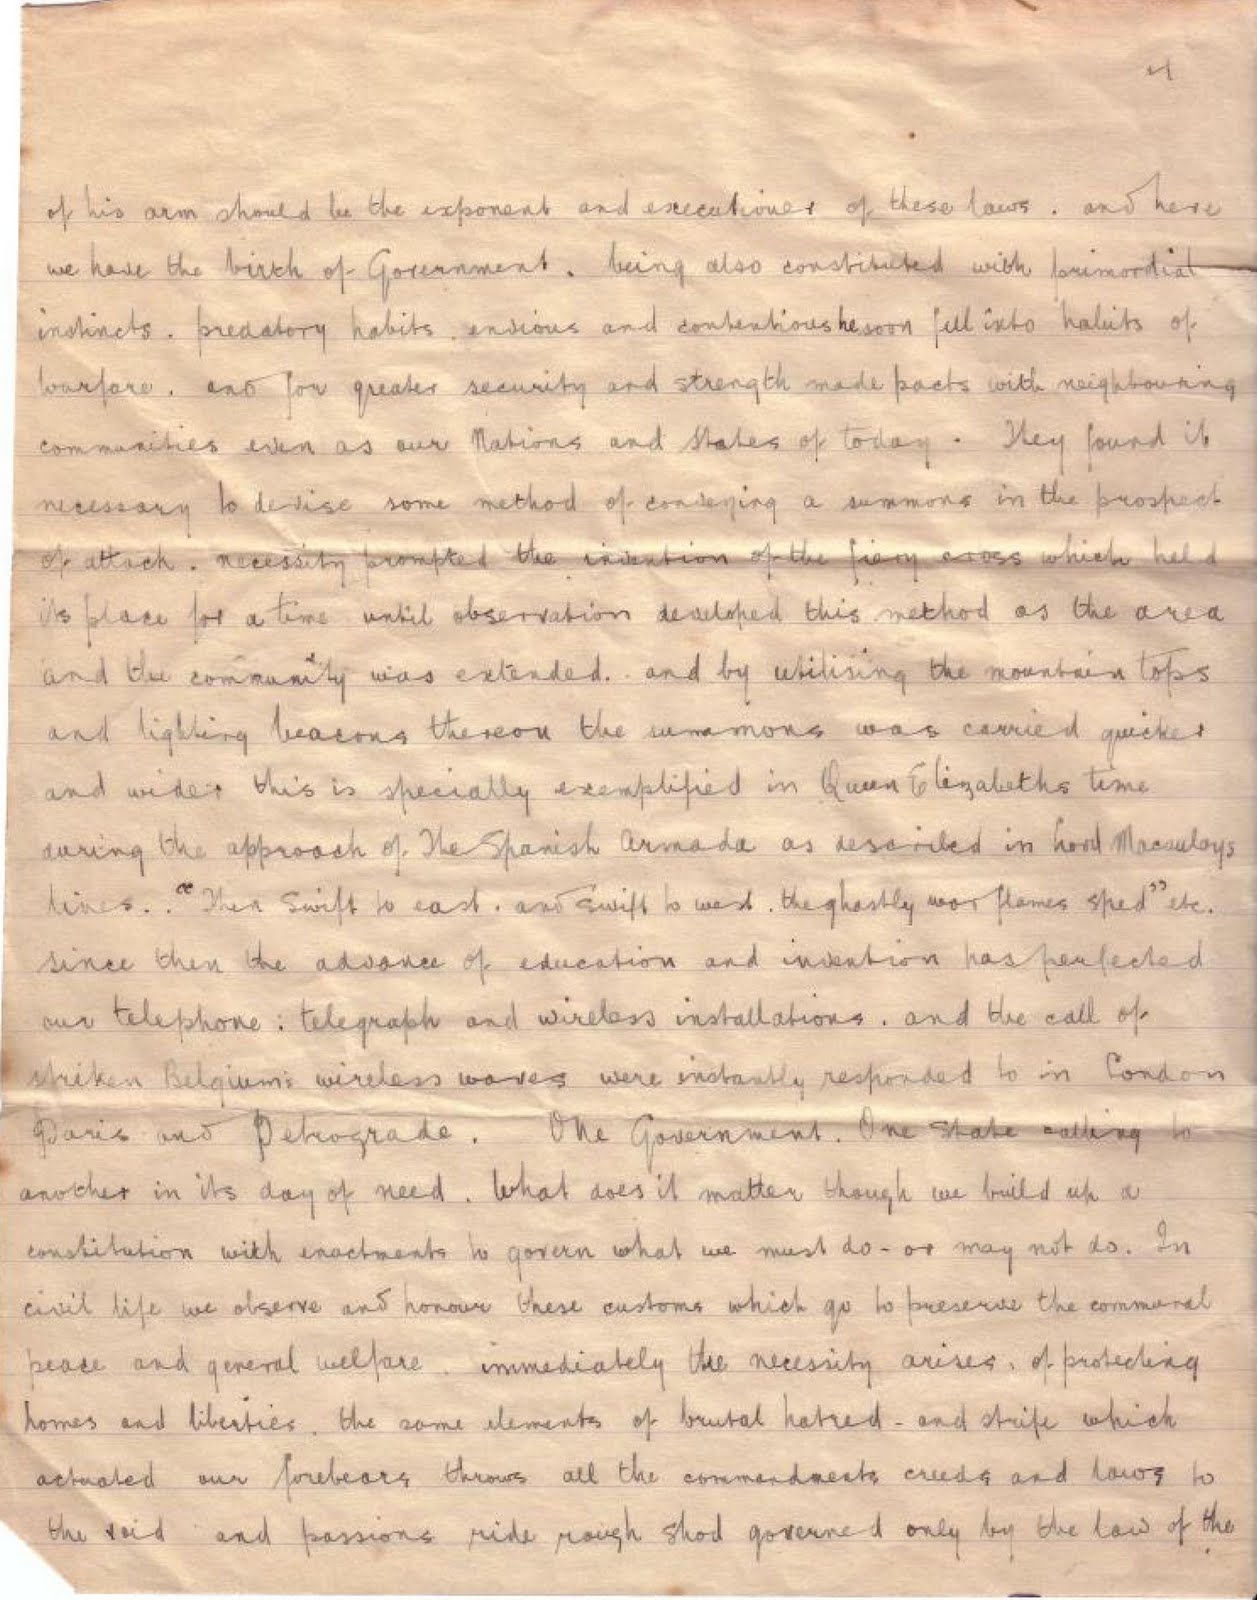 of his arm should be the exponent and executioner of these laws. and here
we have the birth of Government. being also constituted with primordial
instincts. predatory habits. envious and contentious he soon fell into habits of
warfare. and for greater security and strength made pacts with neighbouring
communities even as our Nations and States of today. They found it
necessary to devise some method of conveying a summons in the prospect
of attack. necessity prompted the invention of the fiery cross which held
its place for a time until observation developed this method as the area
and the community was extended. and by utilising the mountain tops
and lighting beacons thereon the summons was carried quicker
and wider this is specially exemplified in Queen Elizabeths time
during the approach of The Spanish Armada as described in Lord Macaulays
lines.. "Then Swift to east. and Swift to west. the ghastly war flames sped" etc.
since then the advance of education and invention has perfected
our telephone: telegraph and wireless installations. and the call of
striken Belgium's wireless waves were instantly responded to in London
Paris and Petrograde. One Government. One State calling to
another in its day of need. What does it matter though we build up a
constitution with enactments to govern what we must do - or may not do. In
civil life we observe and honour these customs which go to preserve the communal
peace and general welfare. immediately the necessity arises. of protecting
homes and liberties. the same elements of brutal hatred - and strife which
actuated our forebears throws all the commandments creeds and laws to
the void and passions ride rough shod governed only by the law of the